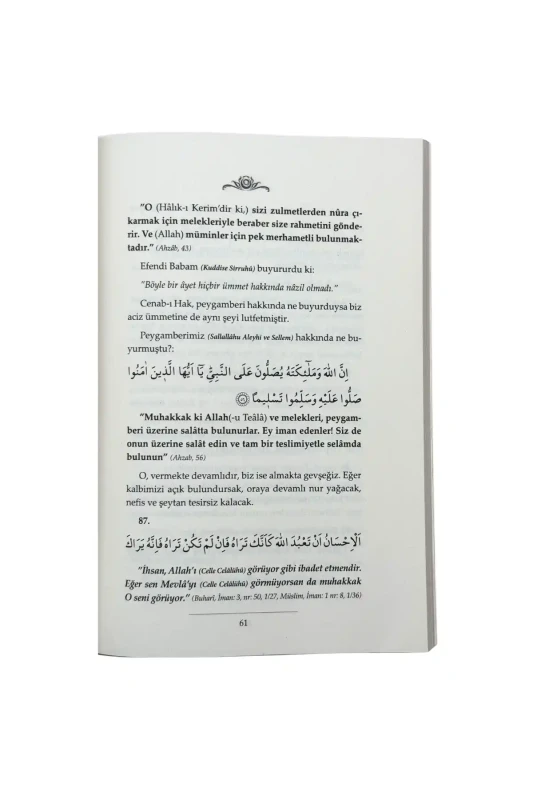 "O (Hâlık-ı Kerim'dir ki,) sizi zulmetlerden nûra çı-
karmak için melekleriyle beraber size rahmetini gönde-
rir. Ve (Allah) müminler için pek merhametli bulunmak-
tadır." (Ahzâb, 43)
Efendi Babam (Kuddise Sirruhû) buyururdu ki:
"Böyle bir âyet hiçbir ümmet hakkında nâzil olmadı."
Cenab-ı Hak, peygamberi hakkında ne buyurduysa biz
aciz ümmetine de aynı şeyi lutfetmiştir.
Peygamberimiz (Sallallâhu Aleyhi ve Sellem) hakkında ne bu-
yurmuştu?:
اِنَّ اللهَ وَمَلٰٓئِكَتَهُ يُصَلُّونَ عَلَى النَّبِيِّ يَٓا اَيُّهَا الَّذِينَ اٰمَنُوا
صَلُّوا عَلَيْهِ وَسَلِّمُوا تَسْلِيمًا ﴿٥٦﴾
"Muhakkak ki Allah(-u Teâlâ) ve melekleri, peygam-
beri üzerine salâtta bulunurlar. Ey iman edenler! Siz de
onun üzerine salât edin ve tam bir teslimiyetle selâmda
bulunun" (Ahzab, 56)
O, vermekte devamlıdır, biz ise almakta gevşeğiz. Eğer
kalbimizi açık bulundursak, oraya devamlı nur yağacak,
nefis ve şeytan tesirsiz kalacak.
87.
اَلْاِحْسَانُ اَنْ تَعْبُدَ اللهَ كَاَنَّكَ تَرَاهُ فَاِنْ لَمْ تَكُنْ تَرَاهُ فَاِنَّهُ يَرَاكَ
"İhsan, Allah'ı (Celle Celâlühû) görüyor gibi ibadet etmendir.
Eğer sen Mevla'yı (Celle Celâlühû) görmüyorsan da muhakkak
O seni görüyor." (Buharî, İman: 3, nr: 50, 1/27, Müslim, İman: 1 nr: 8, 1/36)
61